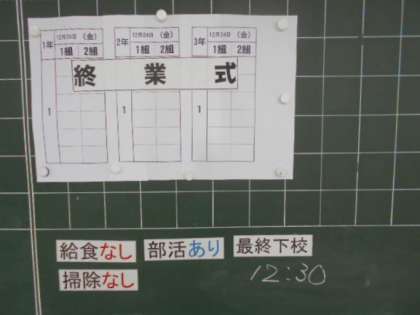 1年 12月24日 (金) 2年 12月24日 (金) 3年 12月24日 (金)
1組 2組 1組 2組 1組 2組
終業式
1 1 1
給食なし 部活あり 最終下校
掃除なし 12:30